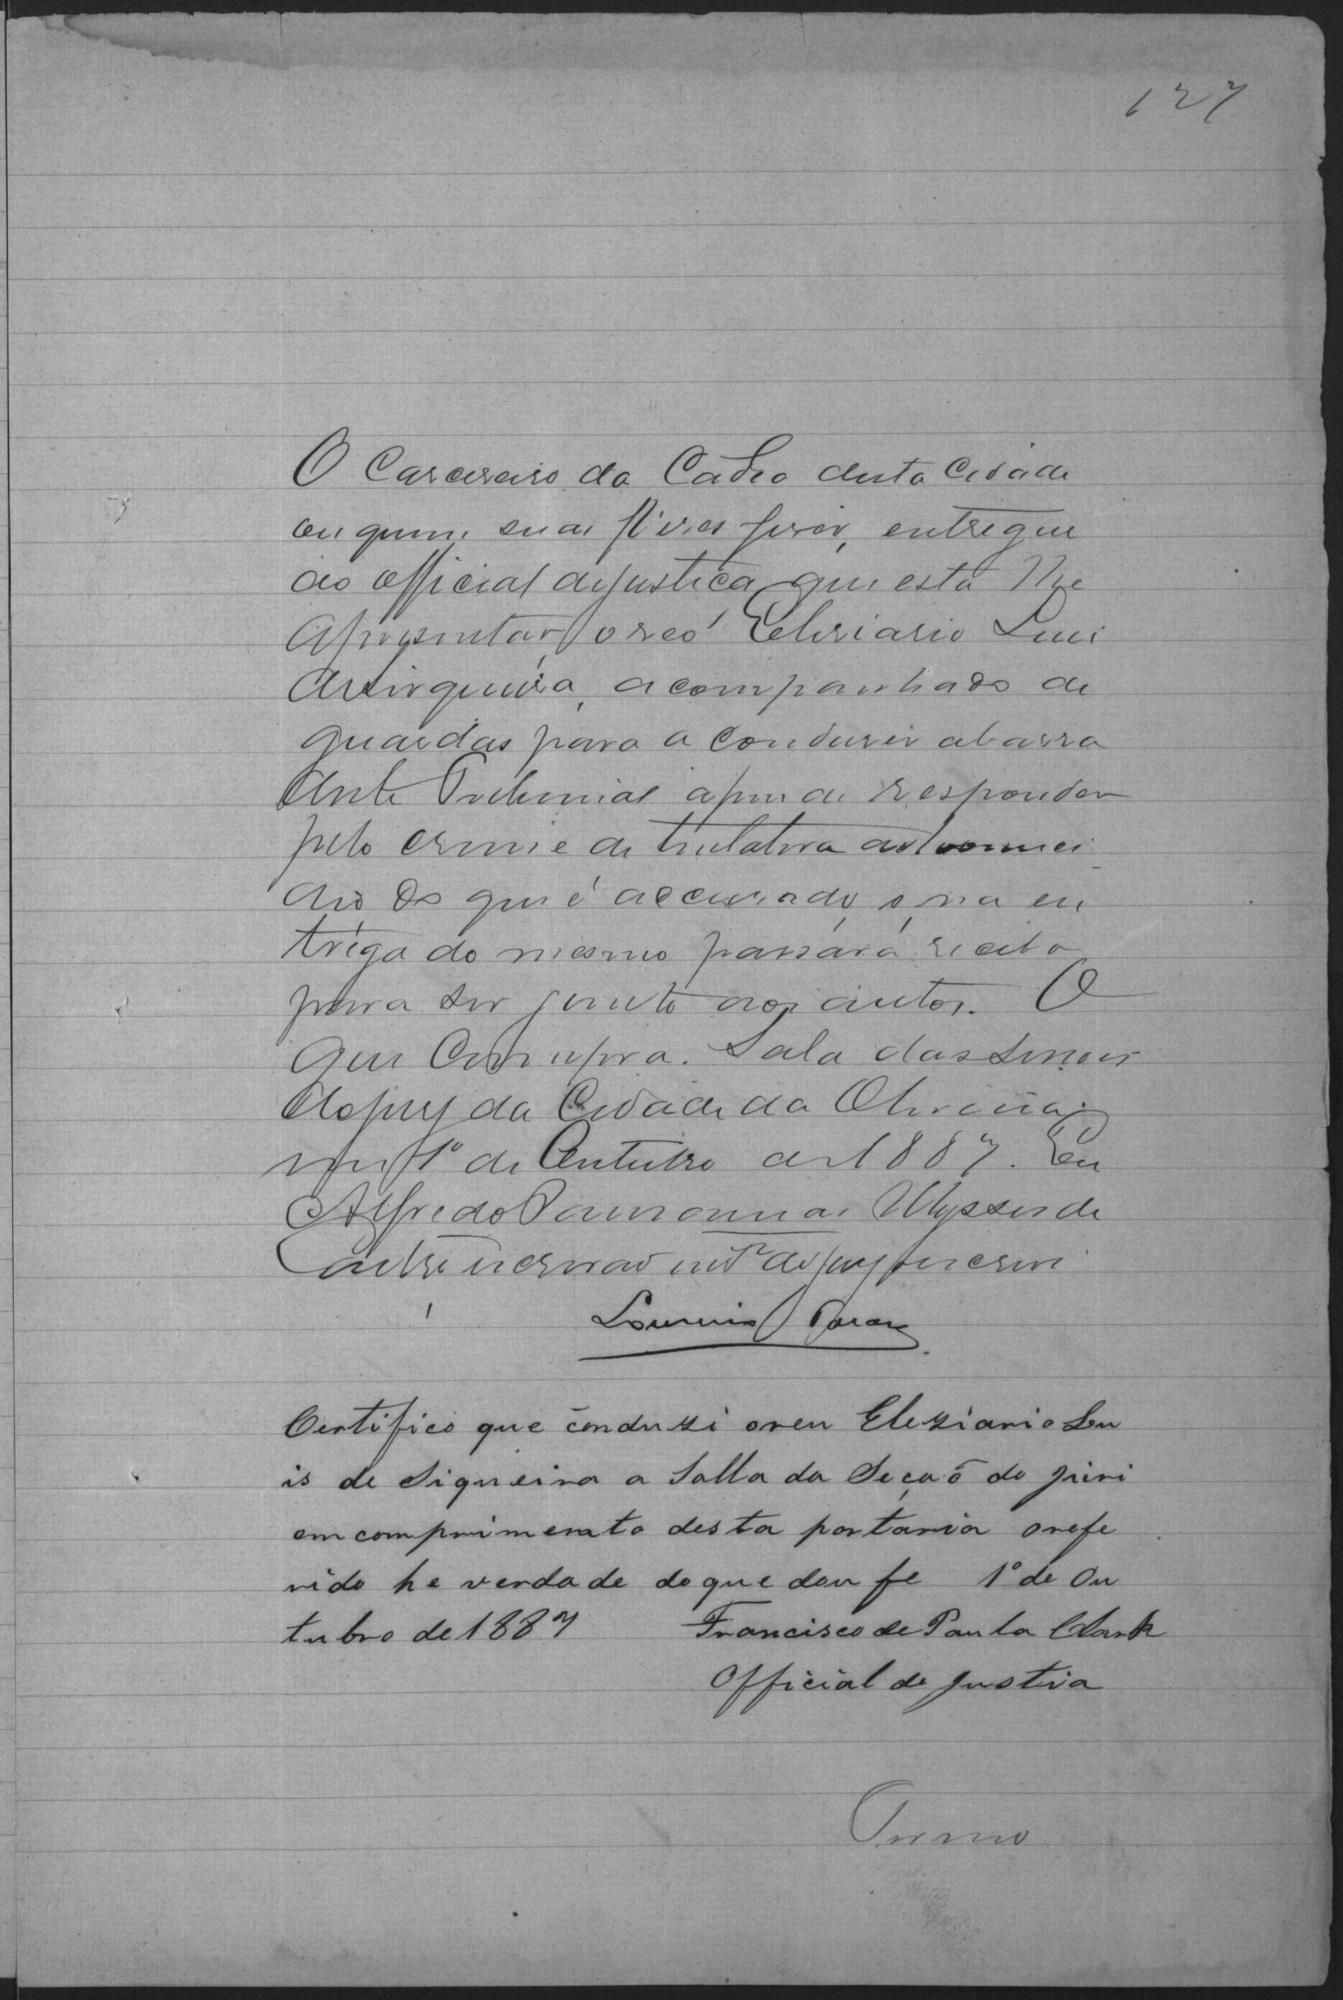 127
O Carcereiro da Cadea desta Cidade
ou quem suas vezes fizer, entregue
ao official de justiça que esta lhe
apresentar, o reo Elesiario Luis
de Sirqueira, acompanhado de
guardas para o condusir a barra
deste Tribunal afim de responder
pelo crime de tentativa de homici
dio de que é accusado, e na en
trega do mesmo passará recibo
para ser junto aos autos. O
que Cumpra. Sala das Sessões
do jury da Cidade da Oliveira,
em 1º de Outubro de 1887. Eu
Alfredo Ulysses de
Castro escrivão intº do jury o escrevi
Certifico que conduzi oreu Eleziario Lu
is de Siqueira a Salla da Seçaõ do juri
em comprimento desta portaria orefe
rido he verdade do que dou fe 1º de Ou
tubro de 1887 Francisco de Paula Clark
Official de Justiça
Termo